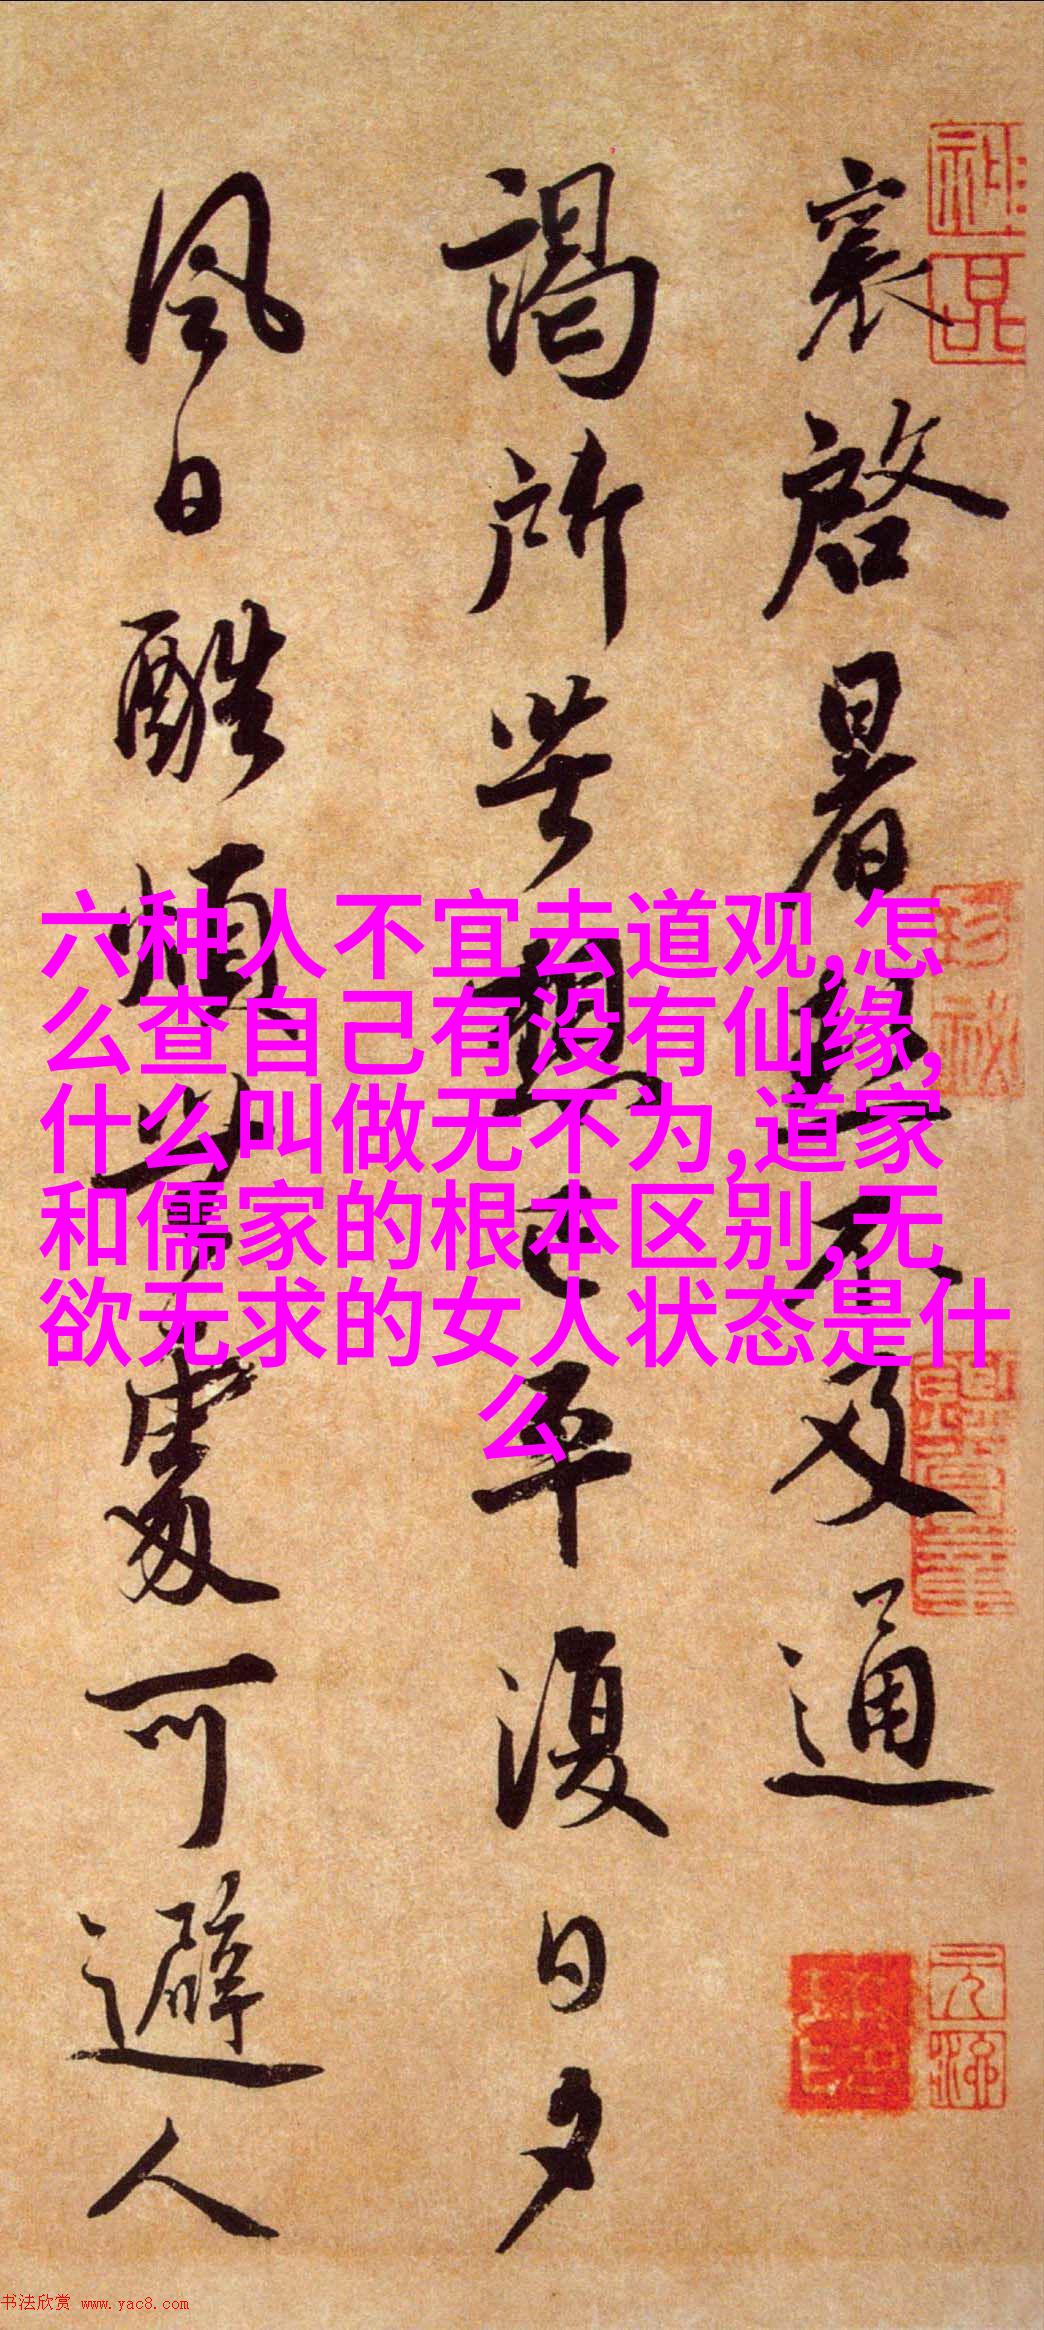 襄启暑热不及通
谒所苦想已平复日夕
风日酷烦无处可避人
六种人不宜去道观,怎
么查自己有没有仙缘,
什么叫做无不为,道家
和儒家的根本区别,无
欲无求的女人状态是什
么
书法欣赏 www.yac8.com